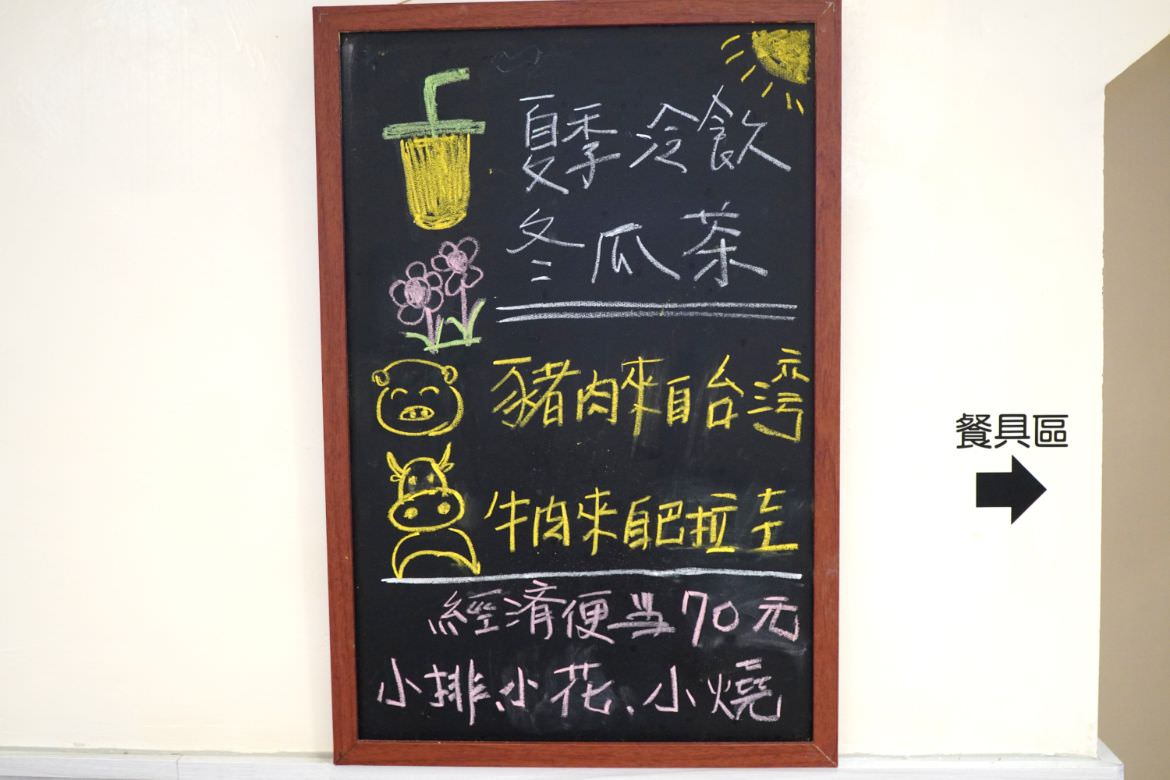 夏季冷飲
冬瓜茶
豬肉來自台灣
牛肉來自巴拉圭
經濟便当70元
小排、小花、小燒
餐具區